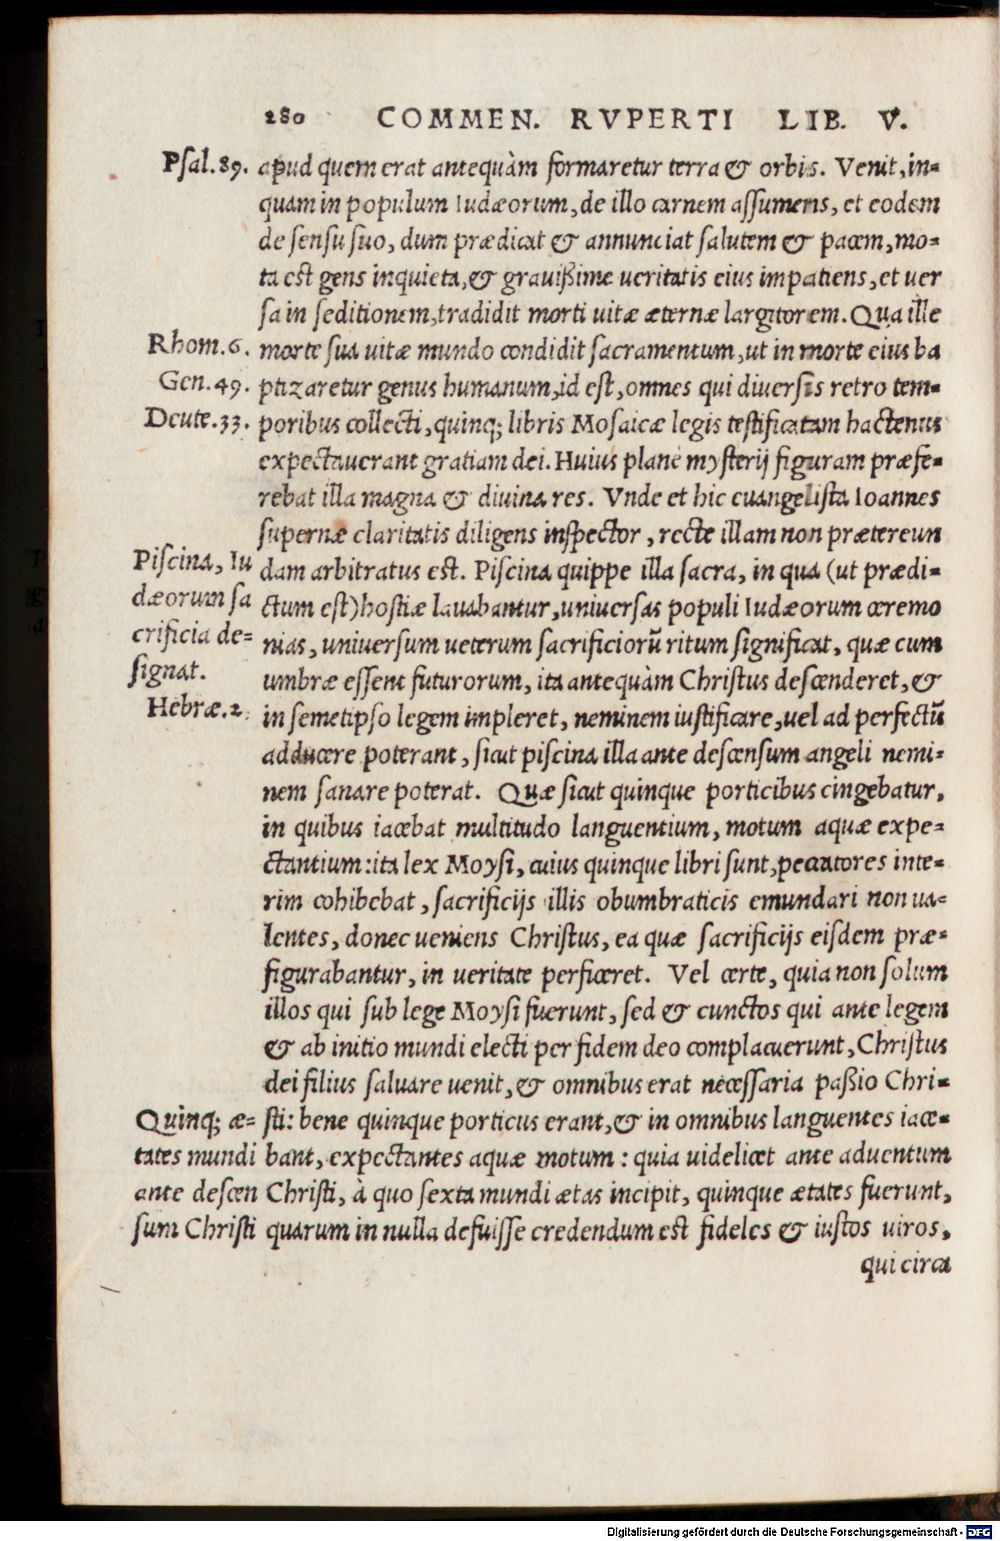 280 COMMEN. RVPERTI LIB. V.
Psal.89. apud quem erat antequàm formaretur terra & orbis. Venit, in-
quam in populum Iudæorum, de illo carnem assumens, et eodem
de sensu suo, dum prædicat & annunciat salutem & pacem, mo-
ta est gens inquieta, & gravißime ueritatis eius impatiens, et uer
sa in seditionem, tradidit morti uitæ æternæ largitorem. Qua ille
Rhom.6. morte sua uitæ mundo condidit sacramentum, ut in morte eius ba
Gen.49. ptizaretur genus humanum, id est, omnes qui diuersis retro tem-
Deute.33. poribus collecti, quinq; libris Mosaicæ legis testificatam hactenus
expectauerant gratiam dei. Huius plane mysterij figuram præfe-
rebat illa magna & diuina res. Vnde et hic euangelista Ioannes
supernæ claritatis diligens inspector, recte illam non prætereun
Piscina, Iu dam arbitratus est. Piscina quippe illa sacra, in qua (ut prædi-
dæorum sa ctum est) hostiæ lauabantur, uniuersas populi Iudæorum ceremo
crificia de= nias, uniuersum ueterum sacrificiorũ ritum significat, quæ cum
signat. umbræ essent futurorum, ita antequàm Christus descenderet, &
Hebræ.2. in semetipso legem impleret, neminem iustificare, uel ad perfectũ
adducere poterant, sicut piscina illa ante descensum angeli nemi-
nem sanare poterat. Quæ sicut quinque porticibus cingebatur,
in quibus iacebat multitudo languentium, motum aquæ expe-
ctantium: ita lex Moysi, cuius quinque libri sunt, peccatores inte-
rim cohibebat, sacrificijs illis obumbraticis emundari non ua-
lentes, donec ueniens Christus, ea quæ sacrificijs eisdem præ-
figurabantur, in ueritate perficeret. Vel certe, quia non solum
illos qui sub lege Moysi fuerunt, sed & cunctos qui ante legem
& ab initio mundi electi per fidem deo complacuerunt, Christus
dei filius saluare uenit, & omnibus erat necessaria paßio Chri-
Quinq; æ= sti: bene quinque porticus erant, & in omnibus languentes iace-
tates mundi bant, expectantes aquæ motum: quia uidelicet ante aduentum
ante descen Christi, à quo sexta mundi ætas incipit, quinque ætates fuerunt,
sum Christi quarum in nulla defuisse credendum est fideles & iustos uiros,
qui circa
Digitalisierung gefördert durch die Deutsche Forschungsgemeinschaft - DFG